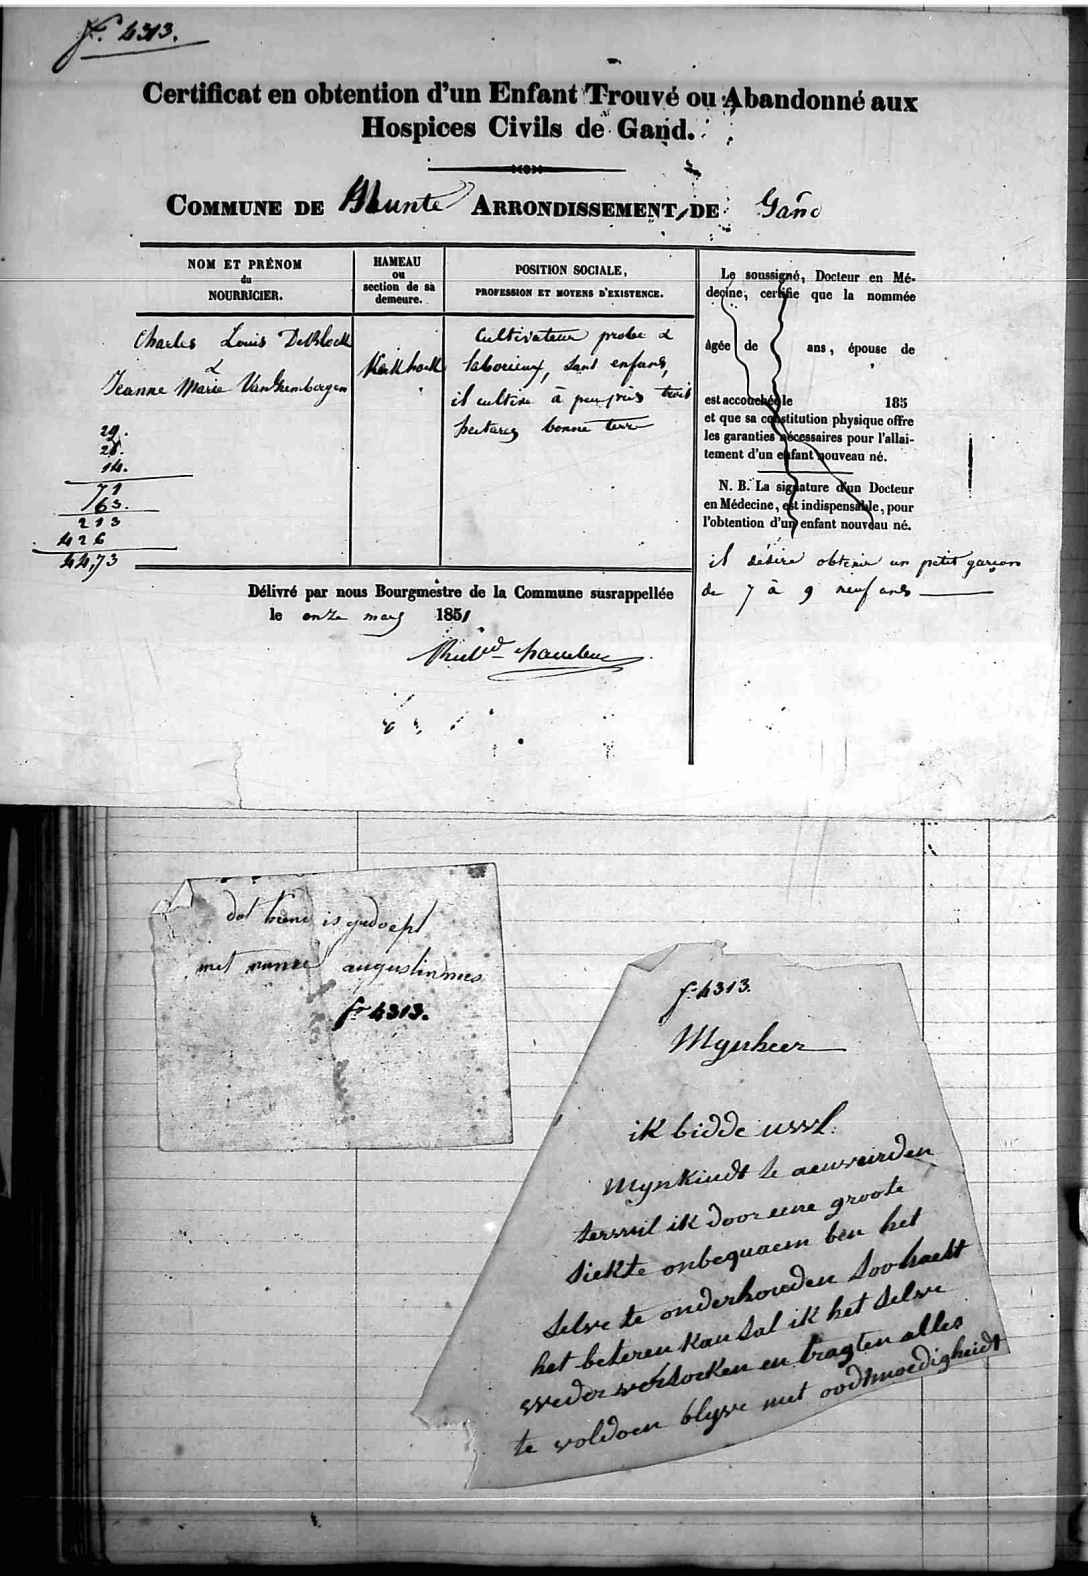 f.º 4313.
Certificat en obtention d'un Enfant Trouvé ou Abandonné aux
Hospices Civils de Gand.
COMMUNE DE Munte ARRONDISSEMENT DE Gand
NOM ET PRÉNOM
du
NOURRICIER.
HAMEAU
ou
section de sa
demeure.
POSITION SOCIALE,
PROFESSION ET MOYENS D'EXISTENCE.
Charles Louis DeBlock
&
Jeanne Marie VanHembergen
Kerkhoek
Cultivateur probe &
laborieux, sans enfans,
il cultive à peu près trois
hectares bonne terre
29.
28.
14.
71
63.
213
426
44,73
Le soussigné, Docteur en Mé-
decine, certifie que la nommée
âgée de ans, épouse de
est accouchée le 185
et que sa constitution physique offre
les garanties nécessaires pour l'allai-
tement d'un enfant nouveau né.
N. B. La signature d'un Docteur
en Médecine, est indispensable, pour
l'obtention d'un enfant nouveau né.
il désire obtenir un petit garçon
de 7 à 9 neuf ans
Délivré par nous Bourgmestre de la Commune susrappellée
le onze mars 1851
dat kind is gedoept
met name augustinnus
fº 4313.
f. 4313.
Mynheer
ik bidde uwl.
Mynkindt te aenveirden
terwil ik door eene groote
siekte onbequaem ben het
selve te onderhouden soohaest
het beteren kan sal ik het selve
weder versoeken en tragten alles
te voldoen blyve met oodtmoedigheidt